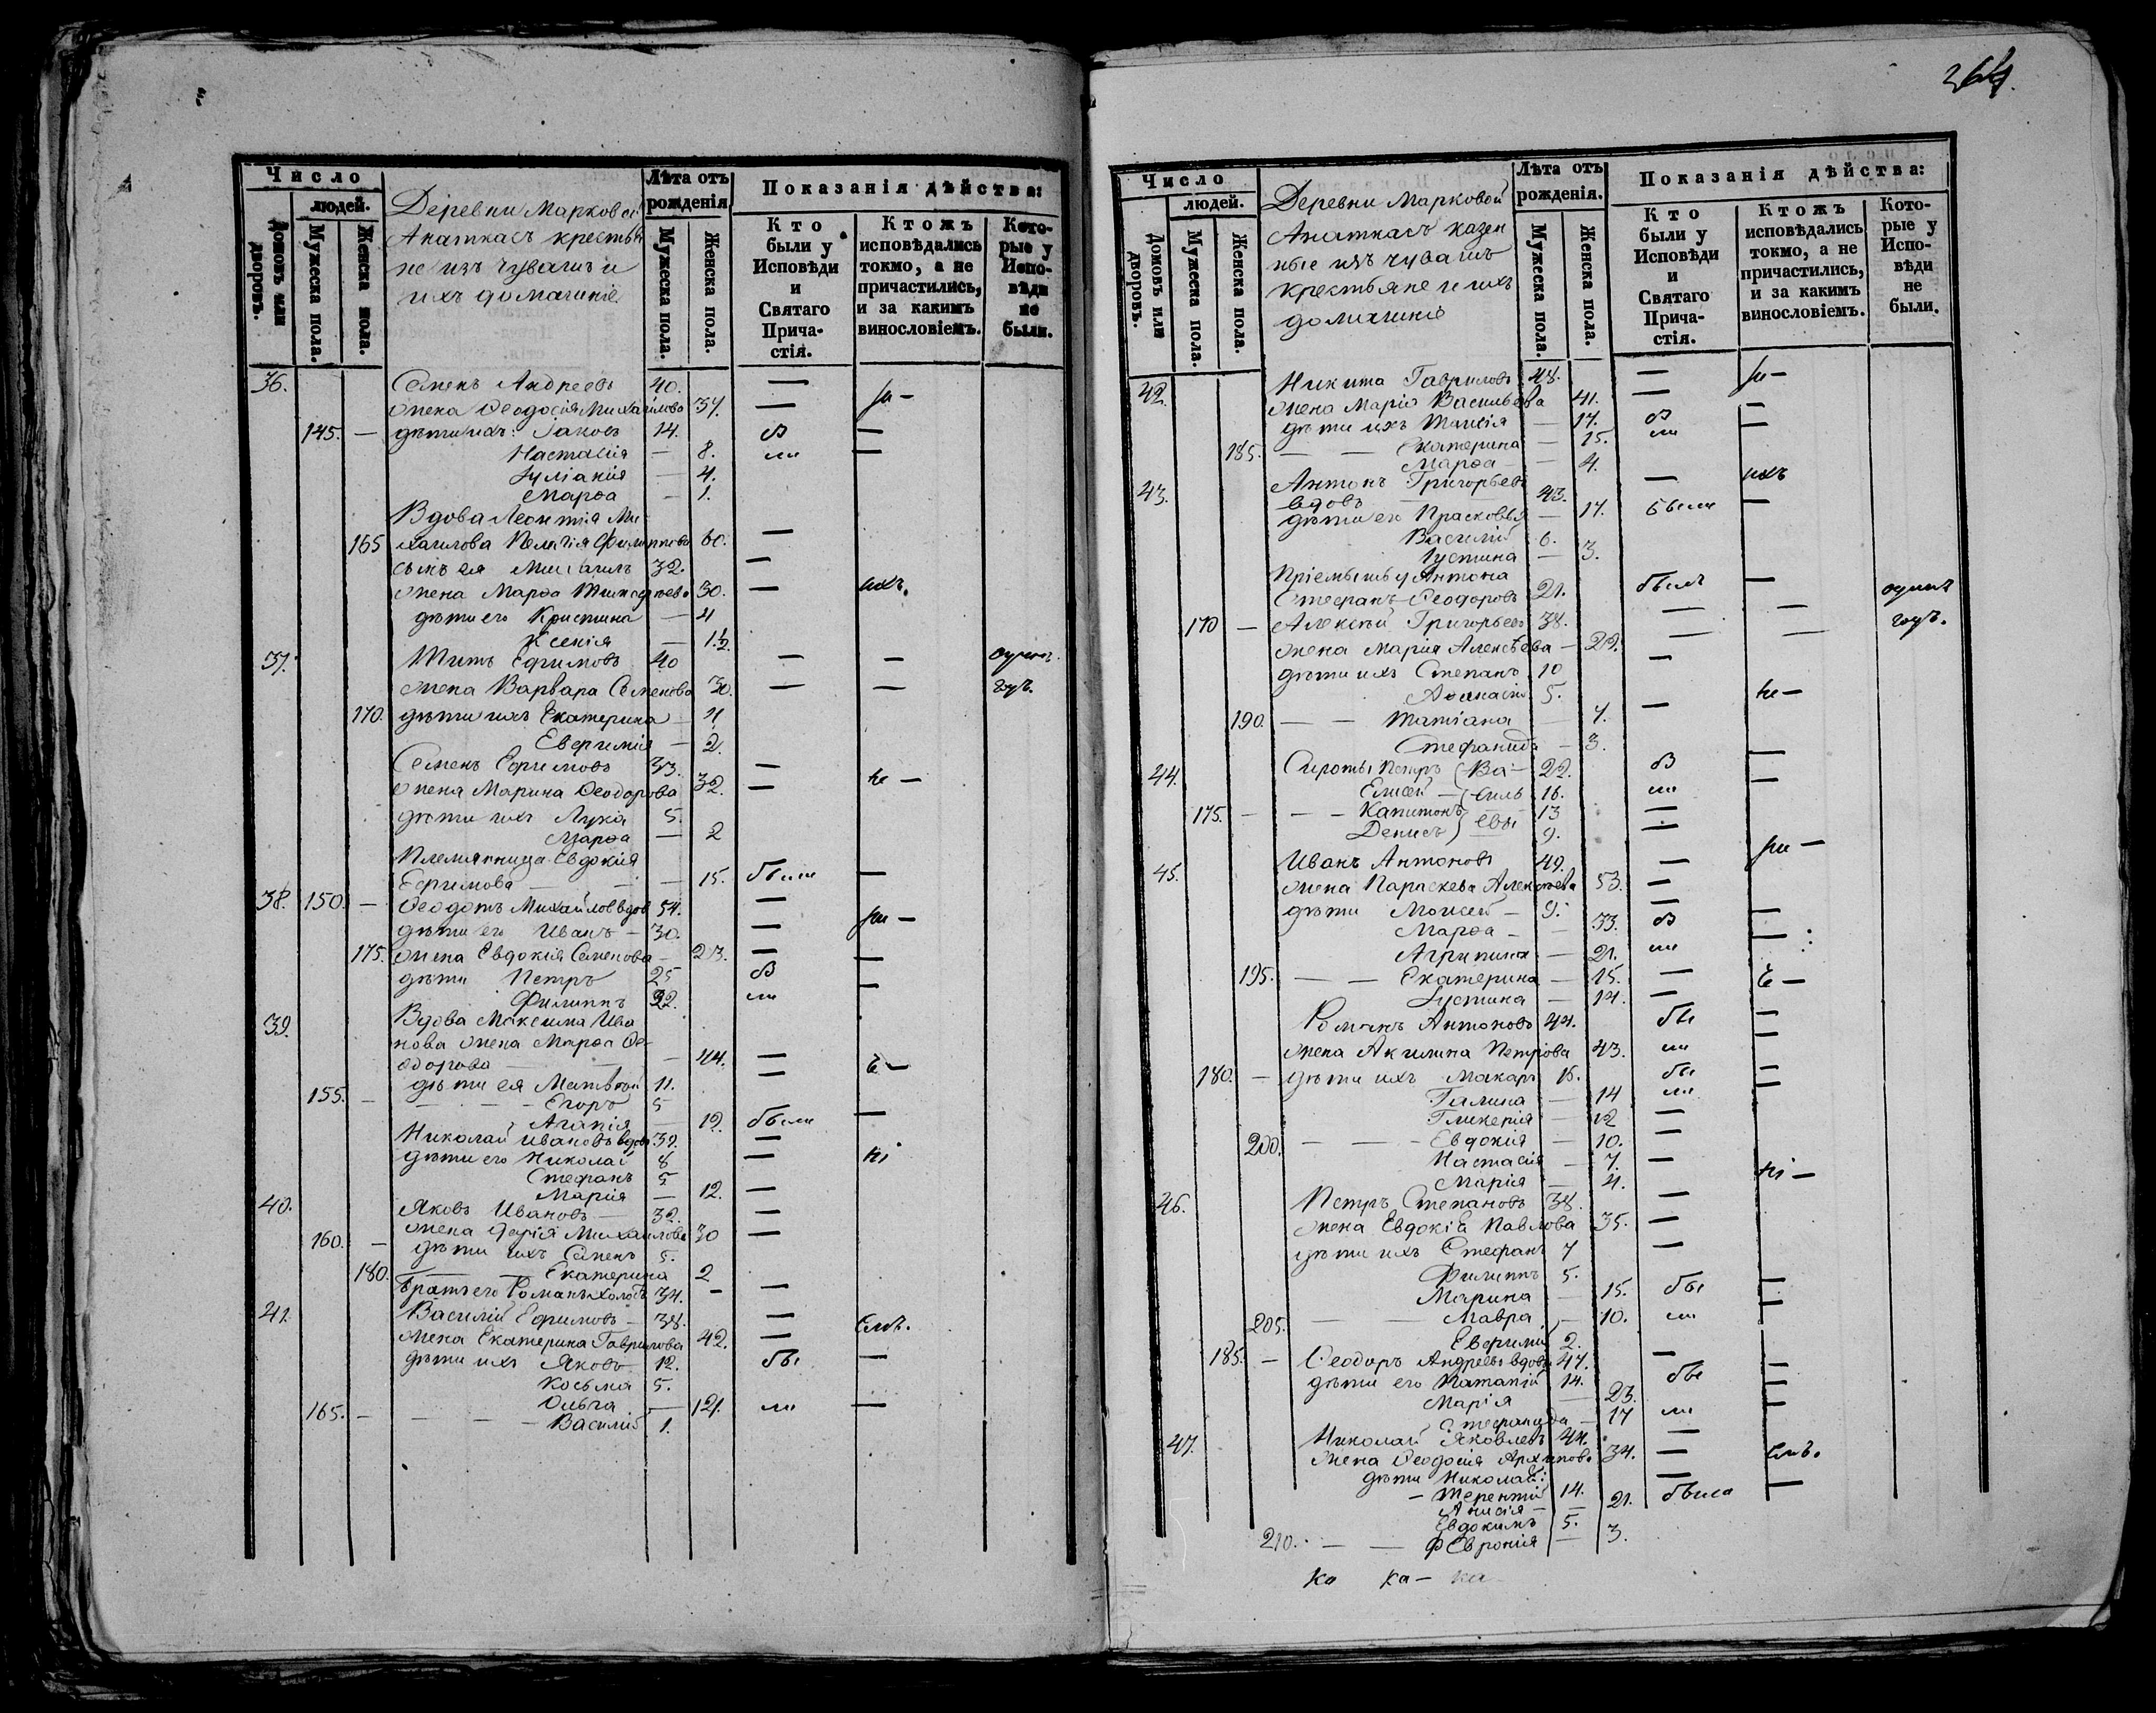 264.
Число
людей.
Домовъ или дворовъ.
Мужеска пола.
Женска пола.
Деревни Марковой
Анаткасъ крестья
не изъ чувашъ и
ихъ домашніе
Лѣта отъ рожденія
Мужеска пола.
Женска пола.
Показанія дѣйства:
Кто были у Исповѣди и Святаго Прича-стія.
Ктожъ исповѣдались токмо, а не причастились, и за какимъ винословіемъ.
Кото-рые у Испо-вѣди не были.
36. Семенъ Андреевъ 40. —
жена Ѳеодосія Михайлова 37. —
145. — дѣти ихъ: Іаковъ 14. —
Настасія — 8. ли —
Іуліанія — 4.
Марѳа — 1.
Вдова Леонтія Ми
165 хайлова Пелагія Филиппова 60. —
сынъ ея Михаилъ 32. —
жена Марѳа Тимофѣева 30. — ихъ.
дѣти его Кристина — 4
Ксенія — 1½
37. Титъ Ефимовъ 40 — —
жена Варвара Семенова 30. — — годъ.
170. дѣти ихъ Екатерина — 4
Евфимія — 2.
Семенъ Ефимовъ 33. —
жена Марина Ѳеодорова 32. — не —
дѣти ихъ Лука 5.
Марѳа — 2
Племянница Евдокія
Ефимова — 15. были —
38. 150. — Ѳеодотъ Михайлов вдов 54. —
дѣти его Иванъ — 30. —
175. жена Евдокія Семенова — 23. — —
дѣти Петръ 25 —
Филиппъ 22. ли —
39. Вдова Максима Ива
нова жена Марѳа Ѳе-
одорова — 44. —
дѣти ея Матвѣй 11. —
155. — Егоръ 5
Агапія — 12. были —
Николай Ивановъ вдовъ 39. —
дѣти его Николай 8 —
Стефанъ 5.
Марія — 12. —
40. Яковъ Ивановъ — 32. —
жена Дарія Михайлова 30 —
160. — дѣти ихъ Семенъ 5.
180. Екатерина 2
Братъ его Романъ холостъ 34. — —
41. Василій Ефимовъ — 38. —
жена Екатерина Гаврилова 42. —
дѣти ихъ Яковъ 12. бы —
Косьма 5.
Ольга — 121. ли —
165. — — — Василій 1.
Число
людей.
Домовъ или дворовъ.
Мужеска пола.
Женска пола.
Деревни Марковой
Анаткасъ казен
ные изъ чувашъ
крестьяне и ихъ
домашніе
Лѣта отъ рожденія.
Мужеска пола.
Женска пола.
Показанія дѣйства:
Кто были у Исповѣди и Святаго Прича-стія.
Ктожъ исповѣдались токмо, а не причастились, и за какимъ винословіемъ.
Кото-рые у Испо-вѣди не были.
42. Никита Гавриловъ 48. —
жена Марія Васильева 41. —
дѣти ихъ Таисія — 17. —
185. — — Екатерина — 15. ли —
Марѳа — 4.
43. Антонъ Григорьевъ — ихъ
вдовъ 43.
дѣти его Прасковья — 17. были —
Василій 6.
Іустина — 3.
Пріемышъ у Антона
Стефанъ Ѳеодоровъ 21. былъ —
170 — Алексѣй Григорьевъ 38. — — годъ.
жена Марія Алексѣева — 29. — —
дѣти ихъ Степанъ 10 —
Аѳанасій 5. не —
190. — — Татіана 7. —
Стефанида — 3.
44. Сироты Петръ Ва- 22. —
Елисей силь 16. ли —
175. — — — Капитонъ 13 —
Денисъ евы 9. —
45. Иванъ Антоновъ 49. —
жена Параскева Алексѣева 53. —
дѣти Моисей — 9. —
Марѳа — 33. —
Агрипина — 21. ли —
195. — — Екатерина — 15. —
Іустина — 14. —
Романъ Антоновъ 44. бы —
жена Акилина Петрова 43. ли —
180. — дѣти ихъ Макаръ 16. бы —
Галина — 14 ли —
Гликерія — 12 —
200. — — — Евдокія — 10. —
Настасія — 7. —
Марія — 4.
46. Петръ Степановъ 38. —
жена Евдокія Павлова 35. —
дѣти ихъ Стефанъ 7 —
Филиппъ 5.
Марина — 15. бы —
205. — — Мавра — 10. ли —
Евфимій 2.
185. — Ѳеодоръ Андреевъ вдовъ 47. —
дѣти его Потапій 14. бы —
Марія — 23. —
Стефанида — 17 ли —
47. Николай Яковлевъ 44. —
жена Ѳеодосія Архипова 34. —
дѣти Николай: —
— Терентій 14. были —
Анисія — 21.
Евдокимъ 5.
210. — — Февронія — 3.
ка ка — ка